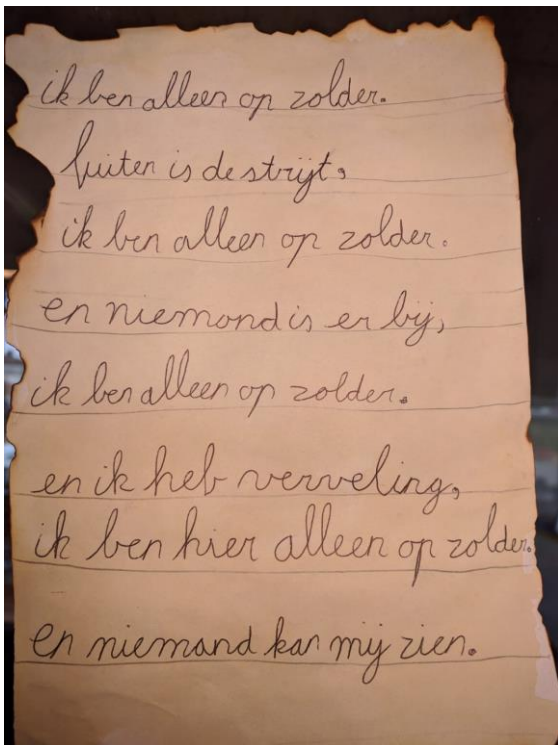 ik ben alleen op zolder.
buiten is de strijt,
ik ben alleen op zolder.
en niemand is er bij,
ik ben alleen op zolder.
en ik heb verveling,
ik ben hier alleen op zolder.
en niemand kan mij zien.